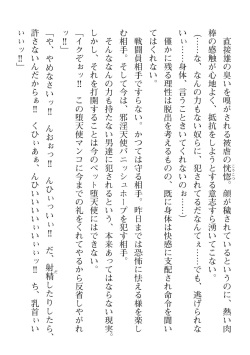 直接雄の臭いを嗅がされる被虐の恍惚。顔が穢されているというのに、熱い肉
棒の感触が心地よく、抵抗をしようとする意志すら湧いてこない。
（……な、なんの力もない奴らに、犯されてるだなんてぇ……でも、逃げられな
いぃ……身体、言うこときいてくれないのぉ……）
僅かに残る理性は脱出を考えるものの、既に身体は快感に支配され命令を聞い
てはくれない。
戦闘員相手ですらない。かつては守る相手、昨日までは恐怖に怯える様を楽し
む相手。そして今は、邪淫天使パニッシュホープを犯す相手。
そんななんの力も持たない男達に犯されるという、本来あってはならない現実。
しかし、それを打開することは今のペット堕天使にはできない。
「イクぞぉッ!! この堕天使マンコに今までの礼をくれてやるから反省しやがれ
ッ!!」
「や、やめなさいっ!! んおぉっ!! んひぃっいぃっ!! だ、射精したりしたら、
許さないんだからぁ!! くひぃあぁ、んひいぃいいぃいぃぃっ!! ち、乳首ぃい
ぃぃッ!!」